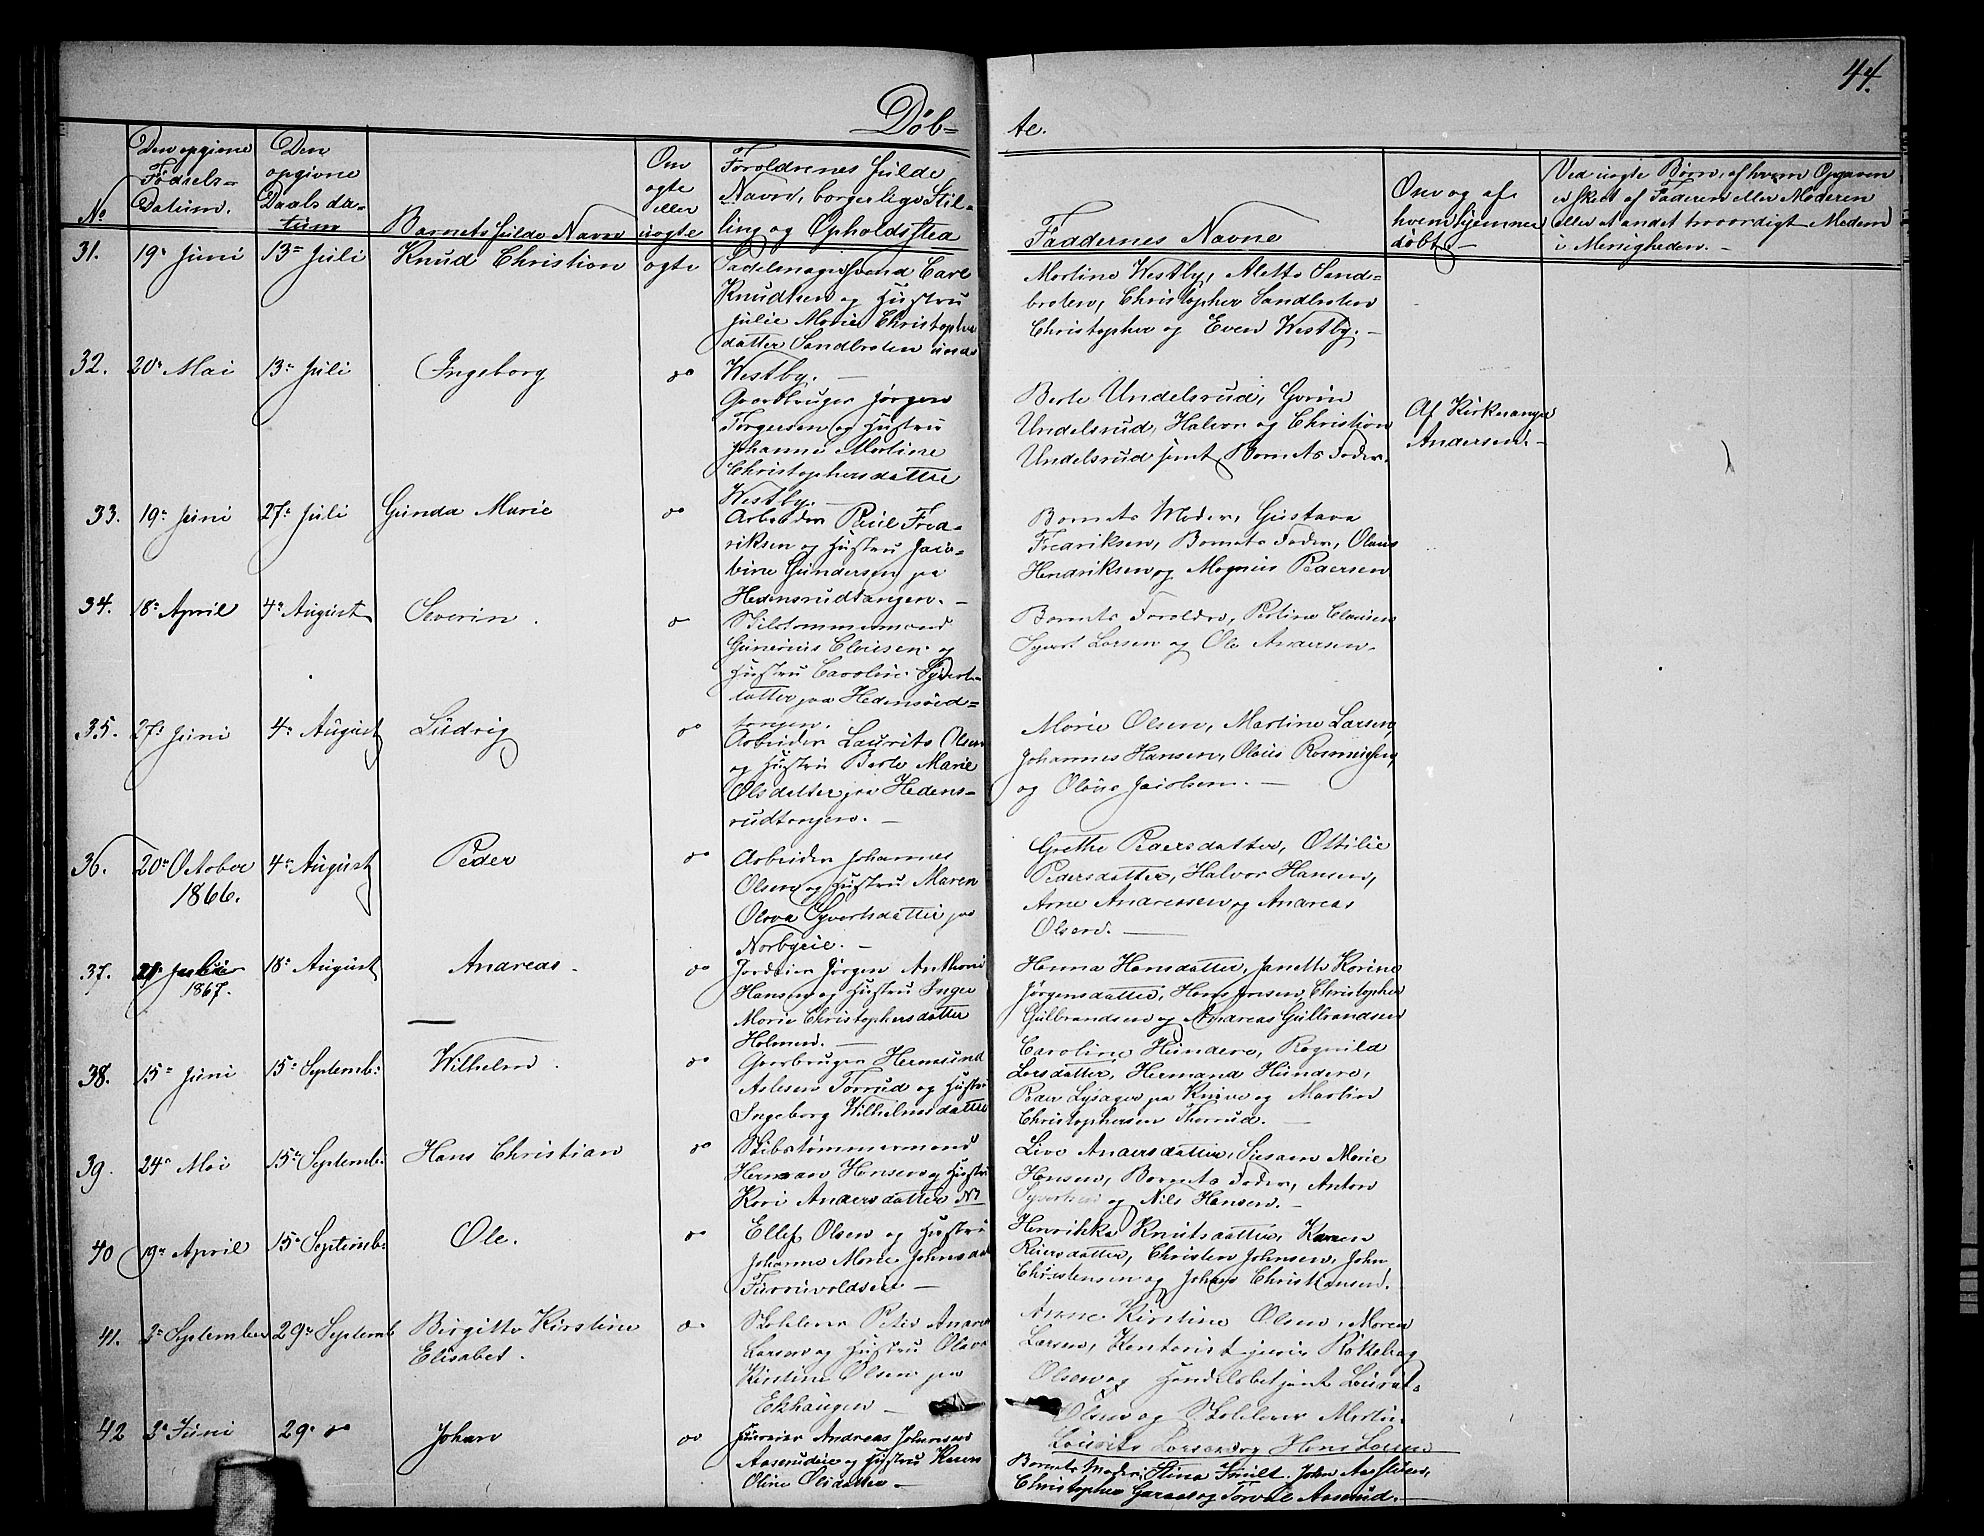 44.
Døb=
te.
No
Den opgivne
Fødsels=
Datum.
Den
opgivne
Daabsda=
tum
Barnets fulde Navn
Om
ægte
eller
uægte
Forældrenes fulde
Navn, borgerlige Stil=
ling og Opholdssted
Faddernes Navne
Om og af
hvem hjemme
døbt.—
Ved uægte Børn, af hvem Opgaven
er skeet af Faderen eller Moderen
eller et andet troværdigt Medem
i Menigheden.—
31.
19de Juni
13de Juli
Knud Christian
ægte
Sadelmagersvend Carl
Knudsen og Hustru
Julie Marie Christopher
datter Sandbroten under
Westby.—
Martine Westby, Alette Sand=
broten, Christopher Sandbroten
Christopher og Even Westby.—
32.
20de Mai
13de Juli
Ingeborg
do
Gaardbruger Jørgen
Torgersen og Hustru
Johanne Martine
Christophersdatter
Westby.—
Berte Undelsrud, Gorine
Undelsrud, Halvor og Christian
Undelsrud samt Barnets Fader.
Af Kirkesanger
Andersen.—
33.
19de Juni
27de Juli
Gunda Marie
do
Arbeider Paul Fred=
riksen og Hustru Jaco=
bine Gundersen paa
Hedensrudtangen.—
Barnets Moder, Gustava
Fredriksen, Barnets Fader, Olaus
Hendriksen og Magnus Pedersen
34.
18de April
4de August
Severin.
do
Skibstømmermand
Gunerius Clausen og
Hustru Caroline Syverts=
datter paa Hedensrud=
tangen.
Barnets Forældre, Petline Clausen
Syvert Larsen og Ole Andersen.
35.
27de Juni
4de August
Ludvig
do
Arbeider Laurits Olsen
og Hustru Berte Marie
Olsdatter paa Hedens=
rudtangen.—
Marie Olsen, Martine Larsen,
Johannes Hansen, Olaus
og Olaus Jacobsen.—
36.
20de October
1866.
4de August
Peder
do
Arbeider Johannes
Olsen og Hustru Maren
Olava Syvertsdatter paa
Norbyeie.—
Grethe Pedersdatter, Ottilie
Pedersdatter, Halvor Hansen,
Arne Andreasen og Andreas
Olsen.—
37.
1867.
18de August
Andreas.
do
Jordeier Jørgen Anthoni
Hansen og Hustru Inger
Marie Christophersdatter
Holmen.—
Hanna Hansdatter, Janette Karine
Jørgensdatter, Hans Jensen, Christopher
Gulbrandsen og Andreas Gulbrandsen
38.
15de Juni
15de Septemb:
Wilhelm.
do
Gaardbruger Hermund
Aslesen Torrud og Hustru
Ingeborg Wilhelmsdatter
Caroline Hundere, Ragnild
Larsdatter, Hermand Hundere,
Peder Lysager paa Knive og Martin
Christophersen Thorrud.—
39.
24de Mai
15de Septemb:
Hans Christian
do
Skibstømmermand
Herman Hansen og Hustru
Kari Andersdatter
Live Andersdatter, Susann Marie
Hansen, Barnets Fader, Anton
Syvertsen og Nils Hansen.—
40
19de April
15de Septemb:
Ole.
do
Ellef Olsen og Hustru
Johanne Marie Johnsdatt
Henrikka Knutsdatter, Karen
Reiersdatter, Christen Johnsen, John
Christensen og Johans Christiansen.
41.
3de September
29de Septemb
Birgitte Kirstine
Elisabet.
do
Skolelærer Peter Andreas
Larsen og Hustru Olava
Kirstine Olsen paa
Ekhaugen—
Anne Kirstine Olsen, Maren
Larsen, Kontorist Jens Røtkeberg
Olsen og Handelsbetjent Laurits
Olsen og Skolelærer Martin
Laurits Larsen og Hans Larsen
42
3de Juni
29de do
Johan
do
Huseier Andreas Johannesen
Aaserudeie og Hustru Karen
Oline Olsdatter—
Barnets Moder, Stina Smitt, John Aaslesen,
Christopher Garaas og Torval Aaserud.—